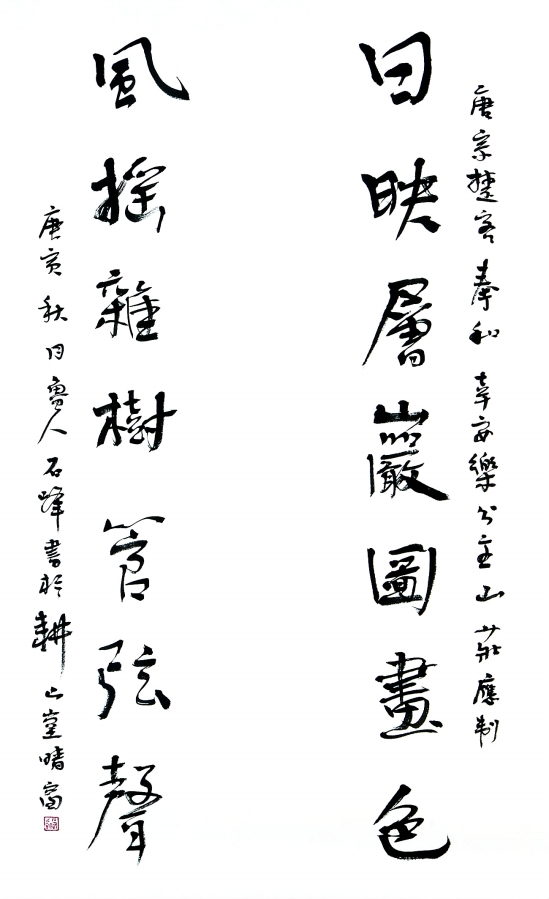 唐宗楚客奉和幸安樂公主山莊應制
日映層巖圖畫色
風搖雜樹管弦聲
庚寅秋月魯人石峰書於耕山堂晴窗